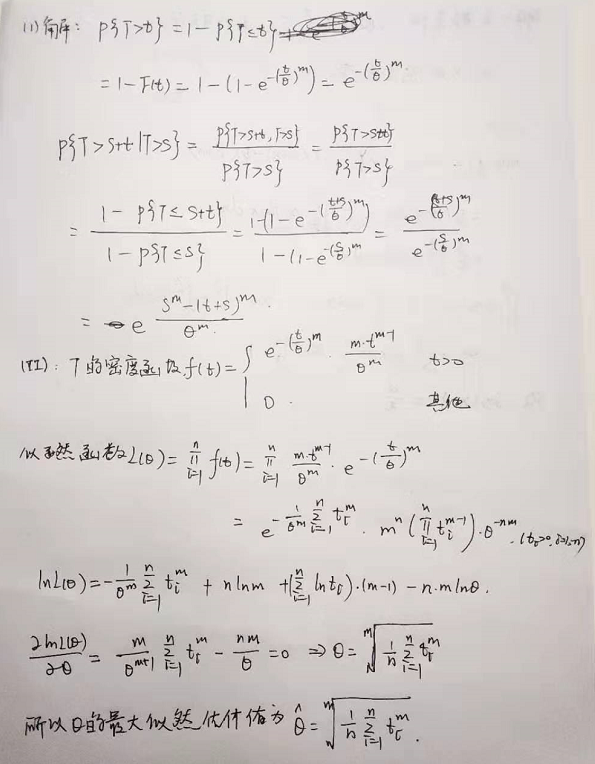 (1) 解: P{T>t} = 1-P{T≤t}
= 1-F(t) = 1-(1-e^{-(t/θ)^m}) = e^{-(t/θ)^m}
P{T>S+t|T>S} = P{T>S+t, T>S}/P{T>S} = P{T>S+t}/P{T>S}
= (1-P{T≤S+t})/(1-P{T≤S}) = (1-(1-e^{-((t+s)/θ)^m}))/(1-(1-e^{-(s/θ)^m})) = e^{-((t+s)/θ)^m}/e^{-(s/θ)^m}
= e^{(s^m-(t+s)^m)/θ^m}.
(II): T的密度函数f(t) = { e^{-(t/θ)^m}·(m·t^{m-1})/θ^m  t>0
0.  其他
似然函数L(θ) = ∏_{i=1}^{n} f(t) = ∏_{i=1}^{n} (m·t^{m-1})/θ^m · e^{-(t/θ)^m}
= e^{-(1/θ^m)∑_{i=1}^{n} t_i^m} · m^n (∏_{i=1}^{n} t_i^{m-1})·θ^{-nm}. (t_i>0, i=1,..n)
lnL(θ) = -(1/θ^m)∑_{i=1}^{n} t_i^m + n ln m + (∑_{i=1}^{n} ln t_i)·(m-1) - n·m lnθ.
∂lnL(θ)/∂θ = (m/θ^{m+1}) ∑_{i=1}^{n} t_i^m - nm/θ = 0 ⇒ θ = \sqrt[m]{(1/n)∑_{i=1}^{n} t_i^m}
所以θ的最大似然估计值为 θ̂ = \sqrt[m]{(1/n)∑_{i=1}^{n} t_i^m}.